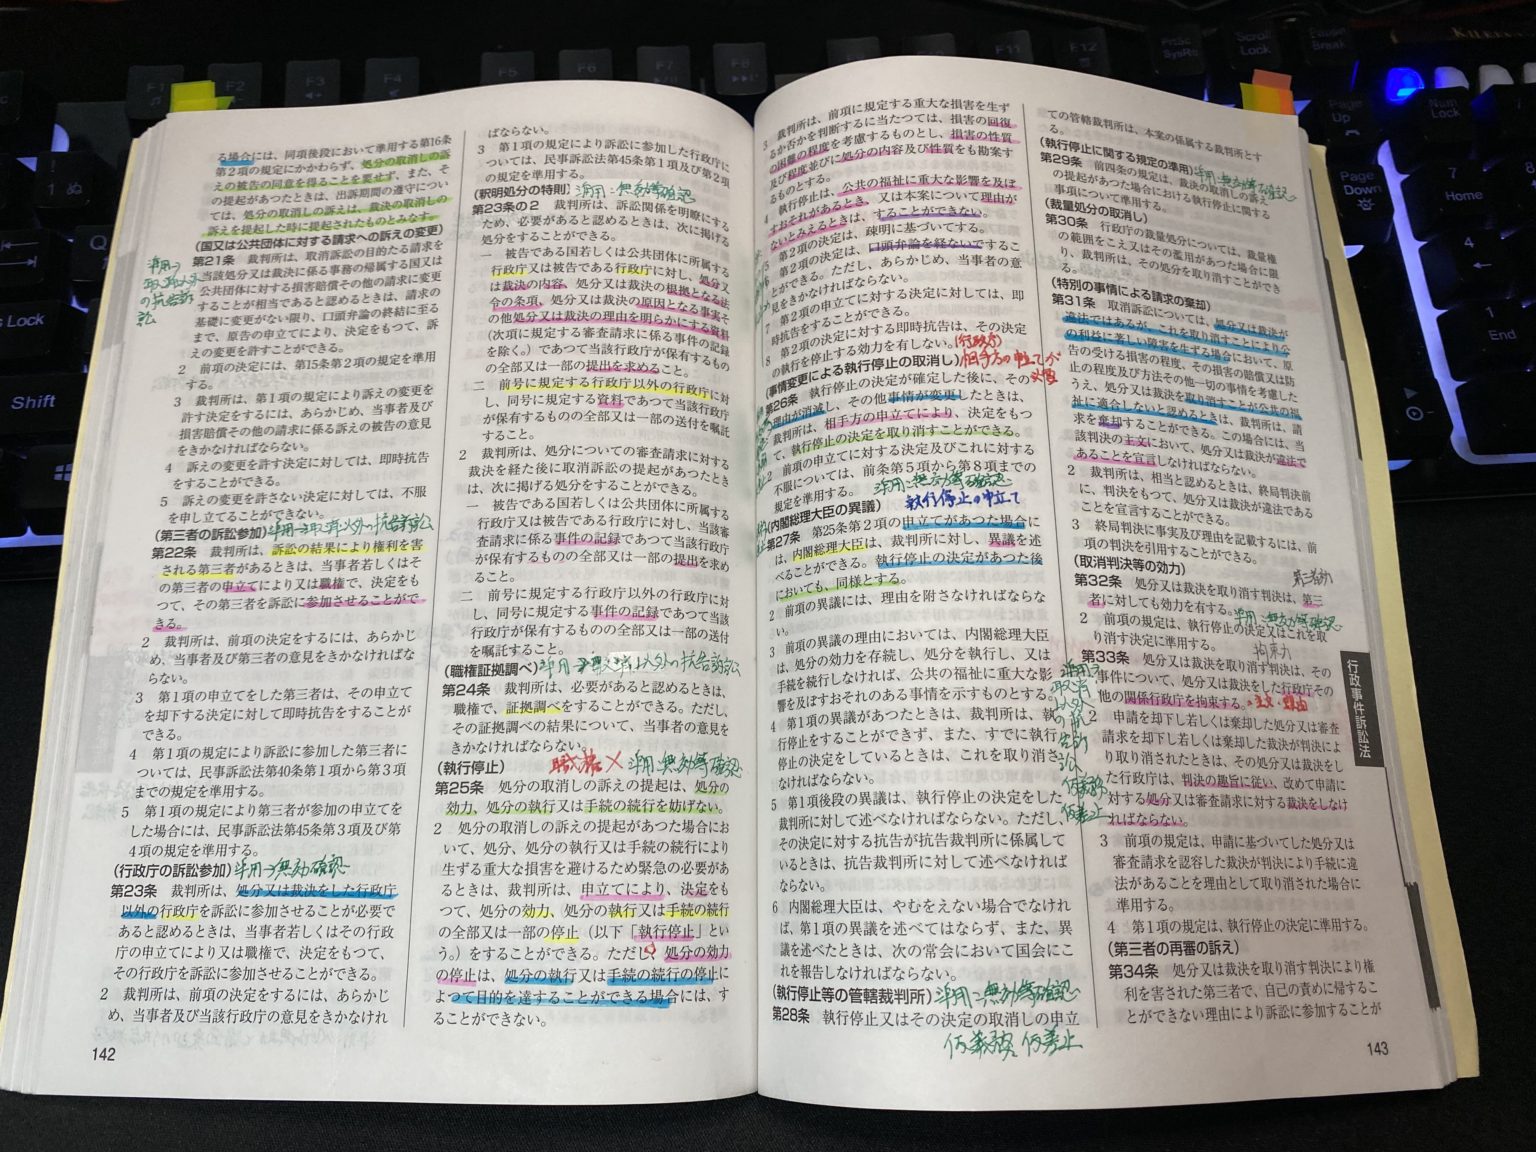 る場合には、同項後段において準用する第16条
第2項の規定にかかわらず、処分の取消しの訴
えの被告の同意を得ることを要せず、また、そ
の提起があつたときは、出訴期間の遵守につい
ては、処分の取消しの訴えは、裁決の取消しの
訴えを提起した時に提起されたものとみなす。
(国又は公共団体に対する請求への訴えの変更)
第21条 裁判所は、取消訴訟の目的たる請求を
当該処分又は裁決に係る事務の帰属する国又は
公共団体に対する損害賠償その他の請求に変更
することが相当であると認めるときは、請求の
基礎に変更がない限り、口頭弁論の終結に至る
まで、原告の申立てにより、決定をもつて、訴
えの変更を許すことができる。
2 前項の決定には、第15条第2項の規定を準用
する。
3 裁判所は、第1項の規定により訴えの変更を
許す決定をするには、あらかじめ、当事者及び
損害賠償その他の請求に係る訴えの被告の意見
をきかなければならない。
4 訴えの変更を許す決定に対しては、即時抗告
をすることができる。
5 訴えの変更を許さない決定に対しては、不服
を申し立てることができない。
(第三者の訴訟参加) 準用→取消以外の抗告訴訟
第22条 裁判所は、訴訟の結果により権利を害
される第三者があるときは、当事者若しくはそ
の第三者の申立てにより又は職権で、決定をも
つて、その第三者を訴訟に参加させることがで
きる。
2 裁判所は、前項の決定をするには、あらかじ
め、当事者及び第三者の意見をきかなければな
らない。
3 第1項の申立てをした第三者は、その申立て
を却下する決定に対して即時抗告をすることが
できる。
4 第1項の規定により訴訟に参加した第三者に
ついては、民事訴訟法第40条第1項から第3項
までの規定を準用する。
5 第1項の規定により第三者が参加の申立てを
した場合には、民事訴訟法第45条第3項及び第
4項の規定を準用する。
(行政庁の訴訟参加) 準用→無効確認
第23条 裁判所は、処分又は裁決をした行政庁
以外の行政庁を訴訟に参加させることが必要で
あると認めるときは、当事者若しくはその行政
庁の申立てにより又は職権で、決定をもつて、
その行政庁を訴訟に参加させることができる。
2 裁判所は、前項の決定をするには、あらかじ
め、当事者及び当該行政庁の意見をきかなけれ
142
ばならない。
3 第1項の規定により訴訟に参加した行政庁に
ついては、民事訴訟法第45条第1項及び第2項
の規定を準用する。
(釈明処分の特則) 準用:無効等確認
第23条の2 裁判所は、訴訟関係を明瞭にする
ため、必要があると認めるときは、次に掲げる
処分をすることができる。
一 被告である国若しくは公共団体に所属する
行政庁又は被告である行政庁に対し、処分又
は裁決の内容、処分又は裁決の根拠となる法
令の条項、処分又は裁決の原因となる事実そ
の他処分又は裁決の理由を明らかにする資料
(次項に規定する審査請求に係る事件の記録
を除く。)であつて当該行政庁が保有するもの
の全部又は一部の提出を求めること。
二 前号に規定する行政庁以外の行政庁に対
し、同号に規定する資料であつて当該行政庁
が保有するものの全部又は一部の送付を嘱託
すること。
2 裁判所は、処分についての審査請求に対する
裁決を経た後に取消訴訟の提起があつたとき
は、次に掲げる処分をすることができる。
一 被告である国若しくは公共団体に所属する
行政庁又は被告である行政庁に対し、当該審
査請求に係る事件の記録であつて当該行政庁
が保有するものの全部又は一部の提出を求め
ること。
二 前号に規定する行政庁以外の行政庁に対
し、同号に規定する事件の記録であつて当該
行政庁が保有するものの全部又は一部の送付
を嘱託すること。
(職権証拠調べ) 準用→取消以外の抗告訴訟
第24条 裁判所は、必要があると認めるときは、
職権で、証拠調べをすることができる。ただし、
その証拠調べの結果について、当事者の意見を
きかなければならない。
(執行停止) 職権× 準用:無効等確認
第25条 処分の取消しの訴えの提起は、処分の
効力、処分の執行又は手続の続行を妨げない。
2 処分の取消しの訴えの提起があつた場合にお
いて、処分、処分の執行又は手続の続行により
生ずる重大な損害を避けるため緊急の必要があ
るときは、裁判所は、申立てにより、決定をも
つて、処分の効力、処分の執行又は手続の続行
の全部又は一部の停止(以下「執行停止」とい
う。)をすることができる。ただし、処分の効力
の停止は、処分の執行又は手続の続行の停止に
よつて目的を達することができる場合には、す
ることができない。
3 裁判所は、前項に規定する重大な損害を生ず
るか否かを判断するに当たつては、損害の回復
の困難の程度を考慮するものとし、損害の性質
及び程度並びに処分の内容及び性質をも勘案す
るものとする。
4 執行停止は、公共の福祉に重大な影響を及ぼ
すおそれがあるとき、又は本案について理由が
ないとみえるときは、することができない。
5 第2項の決定は、疎明に基づいてする。
6 第2項の決定は、口頭弁論を経ないですること
ができる。ただし、あらかじめ、当事者の意
見をきかなければならない。
7 第2項の申立てに対する決定に対しては、即
時抗告をすることができる。
8 第2項の決定に対する即時抗告は、その決定
の執行を停止する効力を有しない。(行政庁)
(事情変更による執行停止の取消し) 相手方の申立てが必要
第26条 執行停止の決定が確定した後に、その
理由が消滅し、その他事情が変更したときは、
裁判所は、相手方の申立てにより、決定をもつ
て、執行停止の決定を取り消すことができる。
2 前項の申立てに対する決定及びこれに対する
不服については、前条第5項から第8項までの
規定を準用する。 準用:無効等確認
(内閣総理大臣の異議) 執行停止の申立て
第27条 第25条第2項の申立てがあつた場合に
は、内閣総理大臣は、裁判所に対し、異議を述
べることができる。執行停止の決定があつた後
においても、同様とする。
2 前項の異議には、理由を附さなければならな
い。
3 前項の異議の理由においては、内閣総理大臣
は、処分の効力を存続し、処分を執行し、又は
手続を続行しなければ、公共の福祉に重大な影
響を及ぼすおそれのある事情を示すものとする。
4 第1項の異議があつたときは、裁判所は、執
行停止をすることができず、また、すでに執行
停止の決定をしているときは、これを取り消さ
なければならない。
5 第1項後段の異議は、執行停止の決定をした
裁判所に対して述べなければならない。ただし、
その決定に対する抗告が抗告裁判所に係属して
いるときは、抗告裁判所に対して述べなければ
ならない。
6 内閣総理大臣は、やむをえない場合でなけれ
ば、第1項の異議を述べてはならず、また、異
議を述べたときは、次の常会において国会にこ
れを報告しなければならない。
(執行停止等の管轄裁判所) 準用:無効等確認
第28条 執行停止又はその決定の取消しの申立
仮義務 仮差止
ての管轄裁判所は、本案の係属する裁判所とす
る。
(執行停止に関する規定の準用) 準用:無効等確認
第29条 前四条の規定は、裁決の取消しの訴え
の提起があつた場合における執行停止に関する
事項について準用する。
(裁量処分の取消し)
第30条 行政庁の裁量処分については、裁量権
の範囲をこえ又はその濫用があつた場合に限
り、裁判所は、その処分を取り消すことができ
る。
(特別の事情による請求の棄却)
第31条 取消訴訟については、処分又は裁決が
違法ではあるが、これを取り消すことにより公
の利益に著しい障害を生ずる場合において、原
告の受ける損害の程度、その損害の賠償又は防
止の程度及び方法その他一切の事情を考慮した
うえ、処分又は裁決を取り消すことが公共の福
祉に適合しないと認めるときは、裁判所は、請
求を棄却することができる。この場合には、当
該判決の主文において、処分又は裁決が違法で
あることを宣言しなければならない。
2 裁判所は、相当と認めるときは、終局判決前
に、判決をもつて、処分又は裁決が違法である
ことを宣言することができる。
3 終局判決に事実及び理由を記載するには、前
項の判決を引用することができる。
(取消判決等の効力)
第三者効
第32条 処分又は裁決を取り消す判決は、第三
者に対しても効力を有する。 準用:無効等確認
2 前項の規定は、執行停止の決定又はこれを取
り消す決定に準用する。 拘束力
第33条 処分又は裁決を取り消す判決は、その
事件について、処分又は裁決をした行政庁その
他の関係行政庁を拘束する。 主文・理由
2 申請を却下し若しくは棄却した処分又は審査
請求を却下し若しくは棄却した裁決が判決によ
り取り消されたときは、その処分又は裁決をし
た行政庁は、判決の趣旨に従い、改めて申請に
対する処分又は審査請求に対する裁決をしなけ
ればならない。
3 前項の規定は、申請に基づいてした処分又は
審査請求を認容した裁決が判決により手続に違
法があることを理由として取り消された場合に
準用する。
4 第1項の規定は、執行停止の決定に準用する。
(第三者の再審の訴え)
第34条 処分又は裁決を取り消す判決により権
利を害された第三者で、自己の責めに帰するこ
とができない理由により訴訟に参加することが
143
行政事件訴訟法
Shift
s Lock
Home
End
Page
Up
Page
Down
Num
Lock
Scroll
Lock
Pause
Break